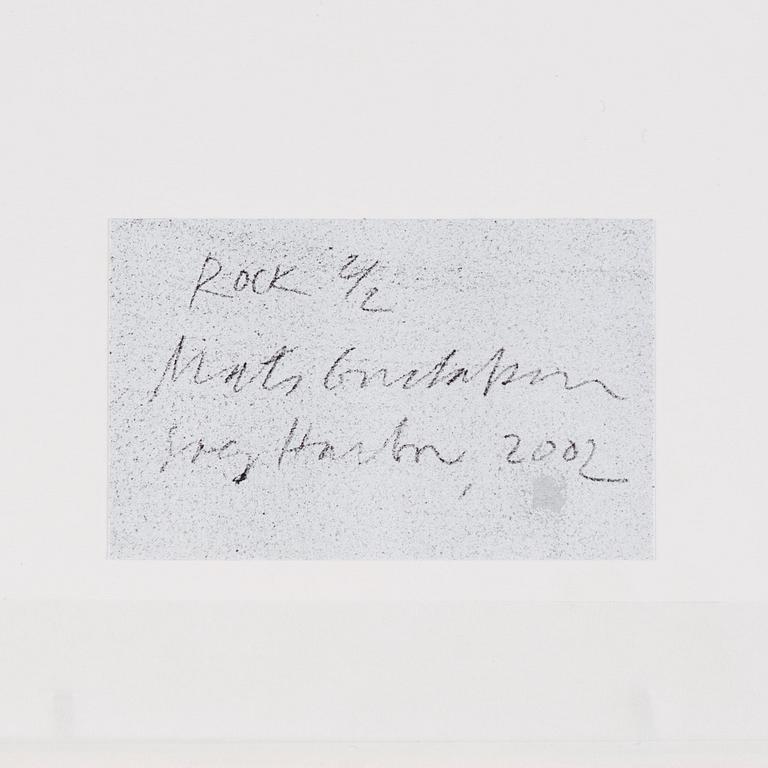 Rock 2/2
Mats Gustafson
Harbor, 2002